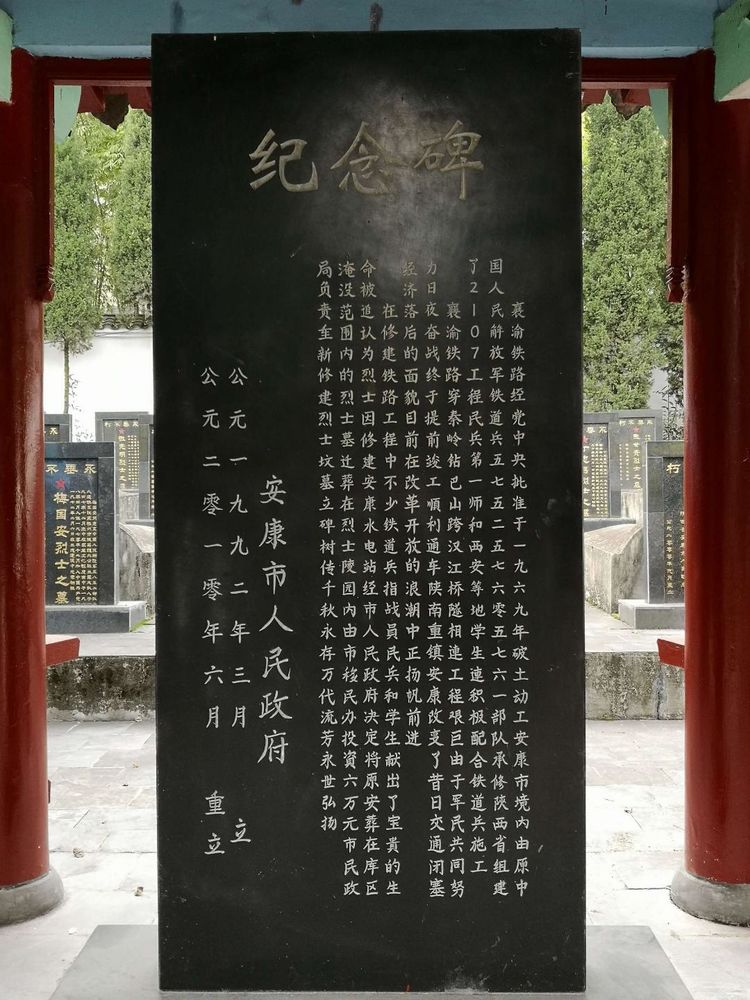 纪念碑
襄渝铁路经党中央批准于一九六九年破土动工安康市境内由原中
国人民解放军铁道兵五七五二五七六零五七六一部队承修陕西省组建
了2107工程民兵第一师和西安等地学生连积极配合铁道兵施工
襄渝铁路穿秦岭钻巴山跨汉江桥隧相连工程艰巨由于军民共同努
力日夜奋战终于提前竣工顺利通车陕南重镇安康改变了昔日交通闭塞
经济落后的面貌目前在改革开放的浪潮中正扬帆前进
在修建铁路工程中不少铁道兵指战员民兵和学生献出了宝贵的生
命被追认为烈士因修建安康水电站经市人民政府决定将原安葬在库区
淹没范围内的烈士墓迁葬在烈士陵园内由市移民办投资六万元市民政
局负责重新修建烈士坟墓立碑树传千秋永存万代流芳永世弘扬
安康市人民政府
公元一九九二年三月 立
公元二零一零年六月 重立
永垂不朽
梅国安烈士之墓